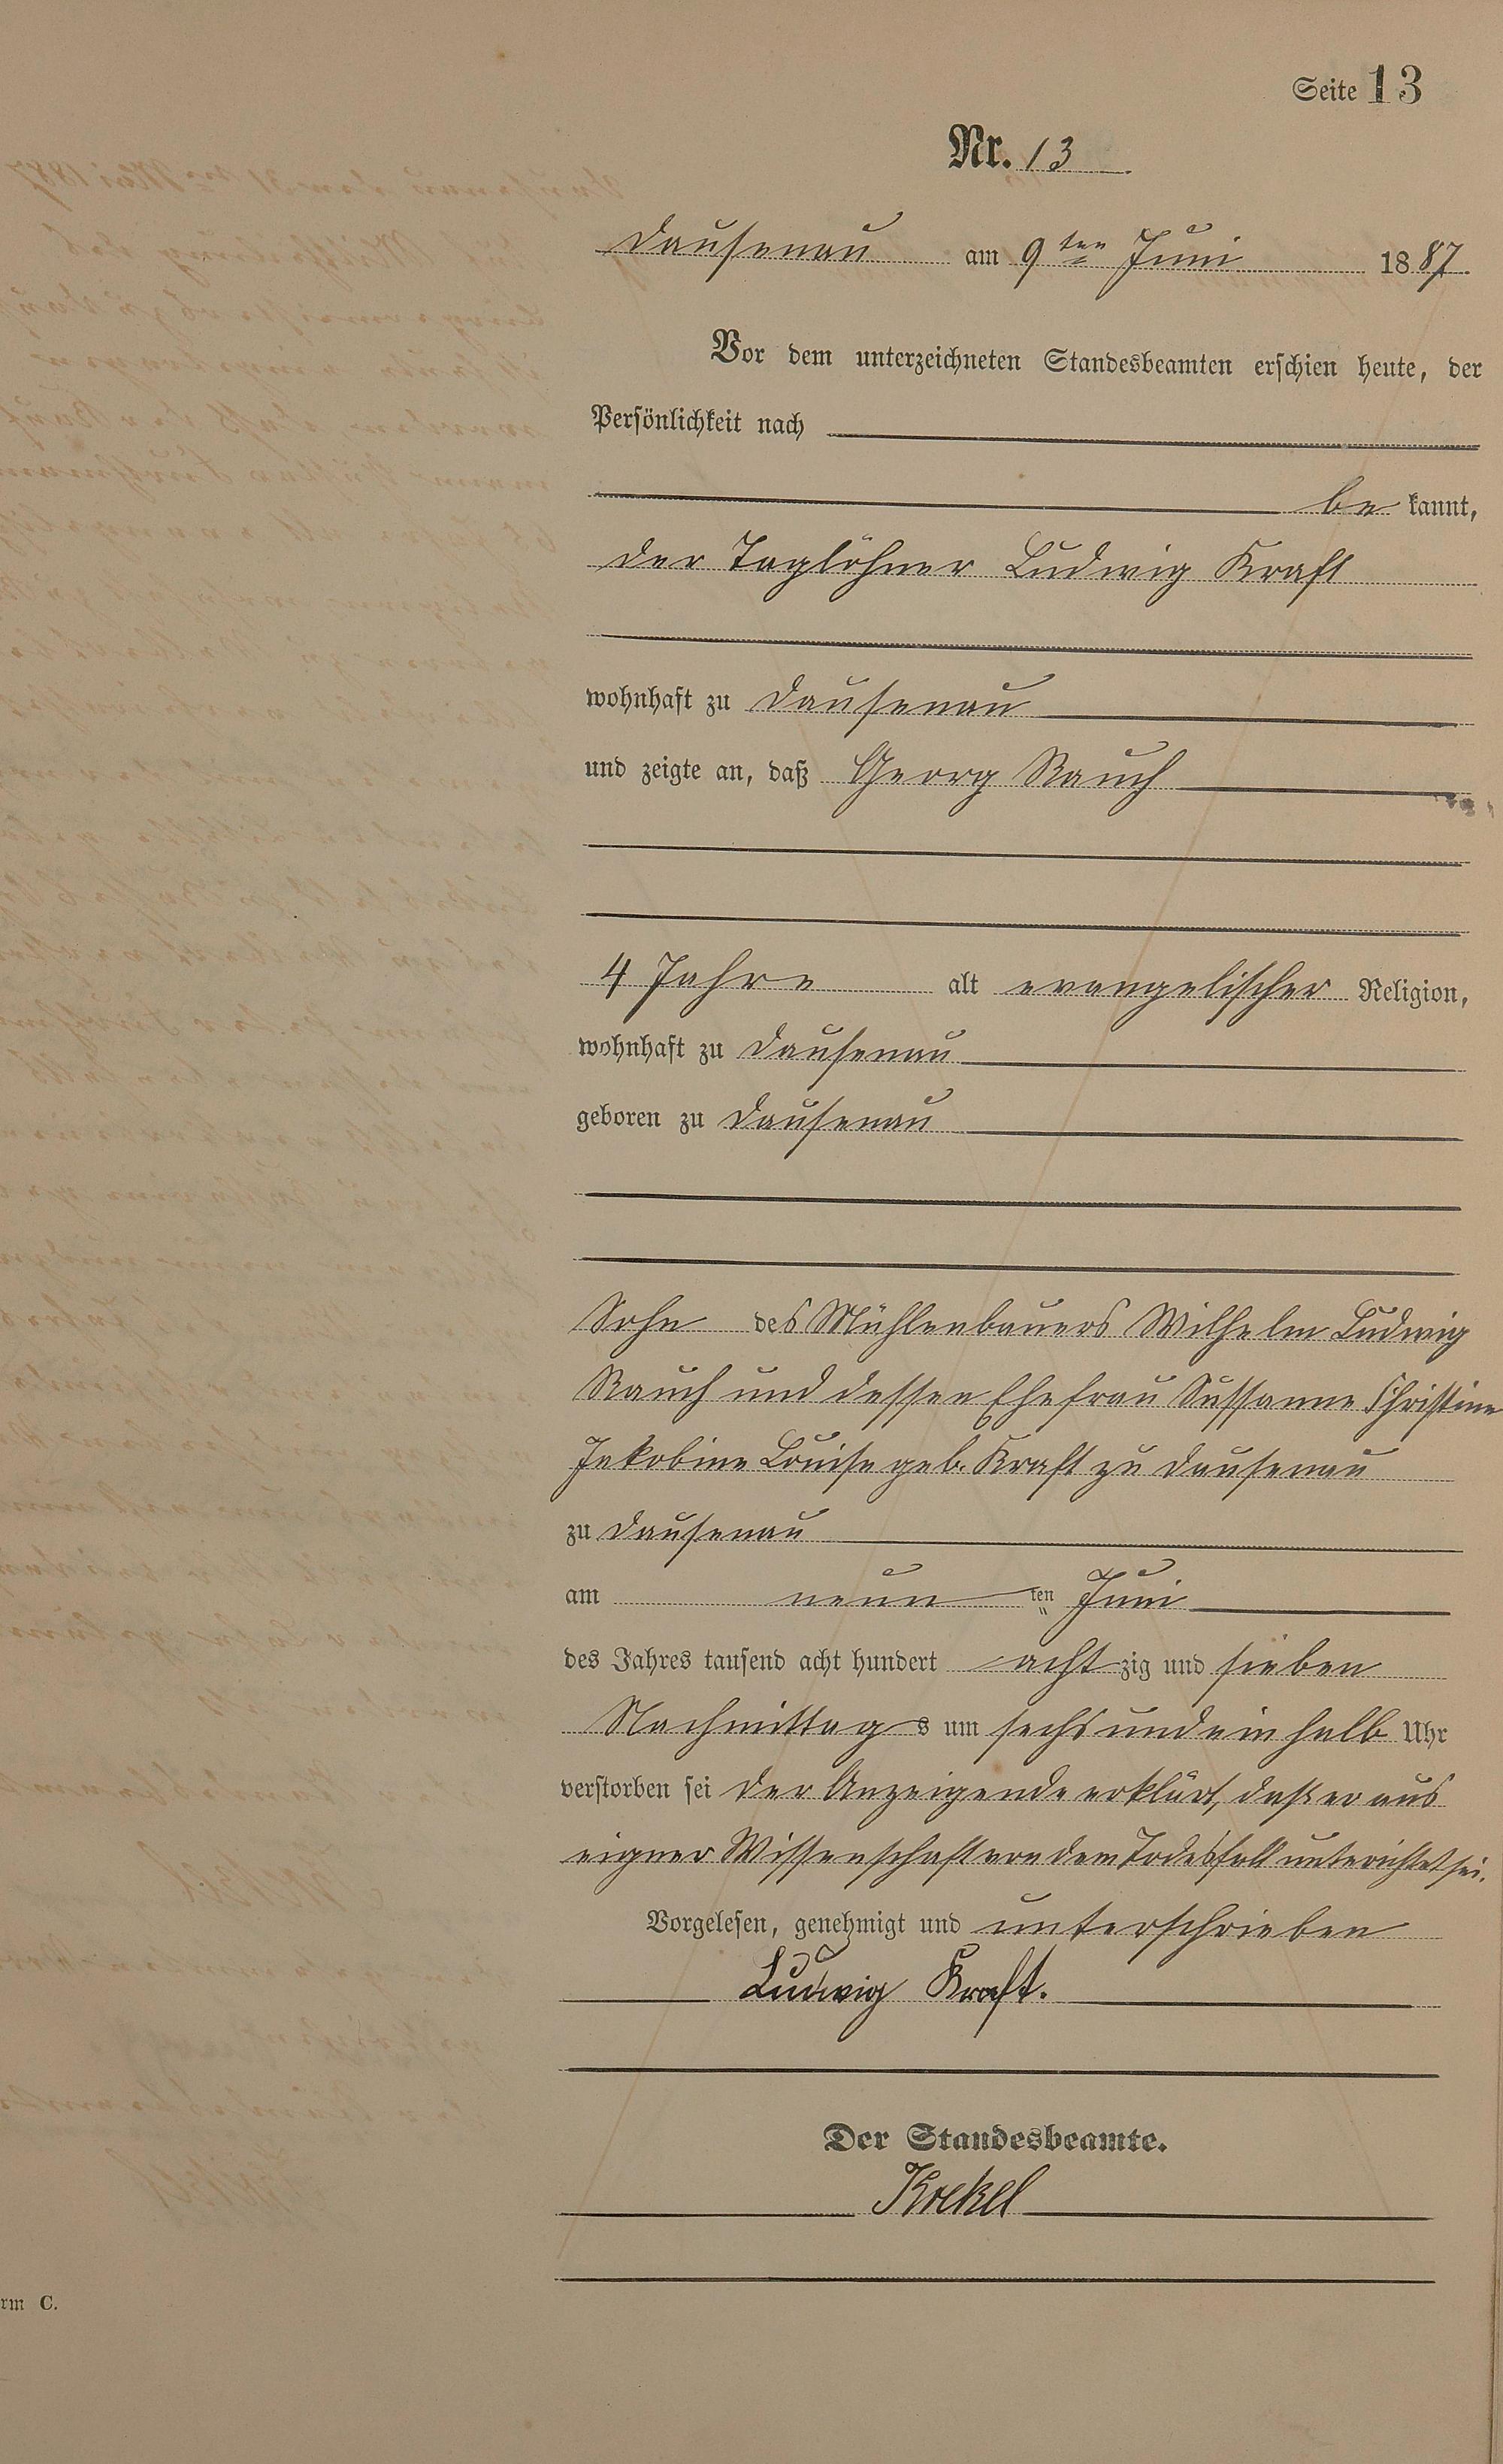 Seite 13
Nr. 13
Dausenau am 9ten Juni 1887
Vor dem unterzeichneten Standesbeamten erschien heute, der
Persönlichkeit nach
be kannt,
der Taglöhner Ludwig Kraft
wohnhaft zu Dausenau
und zeigte an, daß Georg Rauch
4 Jahre alt evangelischer Religion,
wohnhaft zu Dausenau
geboren zu Dausenau
Sohn des Mühlenbauers Wilhelm Ludwig
Rauch und dessen Ehefrau Sussanne Christine
Jakobine Louise geb. Kraft zu Dausenau
zu Dausenau
am neun ten Juni
des Jahres tausend acht hundert acht zig und sieben
Nachmittag s um sechs und ein halb Uhr
verstorben sei Der Anzeigende erklärt, daß er aus
eigner Wissenschaft von dem Todesfall unterichtet sei.
Vorgelesen, genehmigt und unterschrieben
Ludwig Kraft.
Der Standesbeamte.
Krekel
rm C.